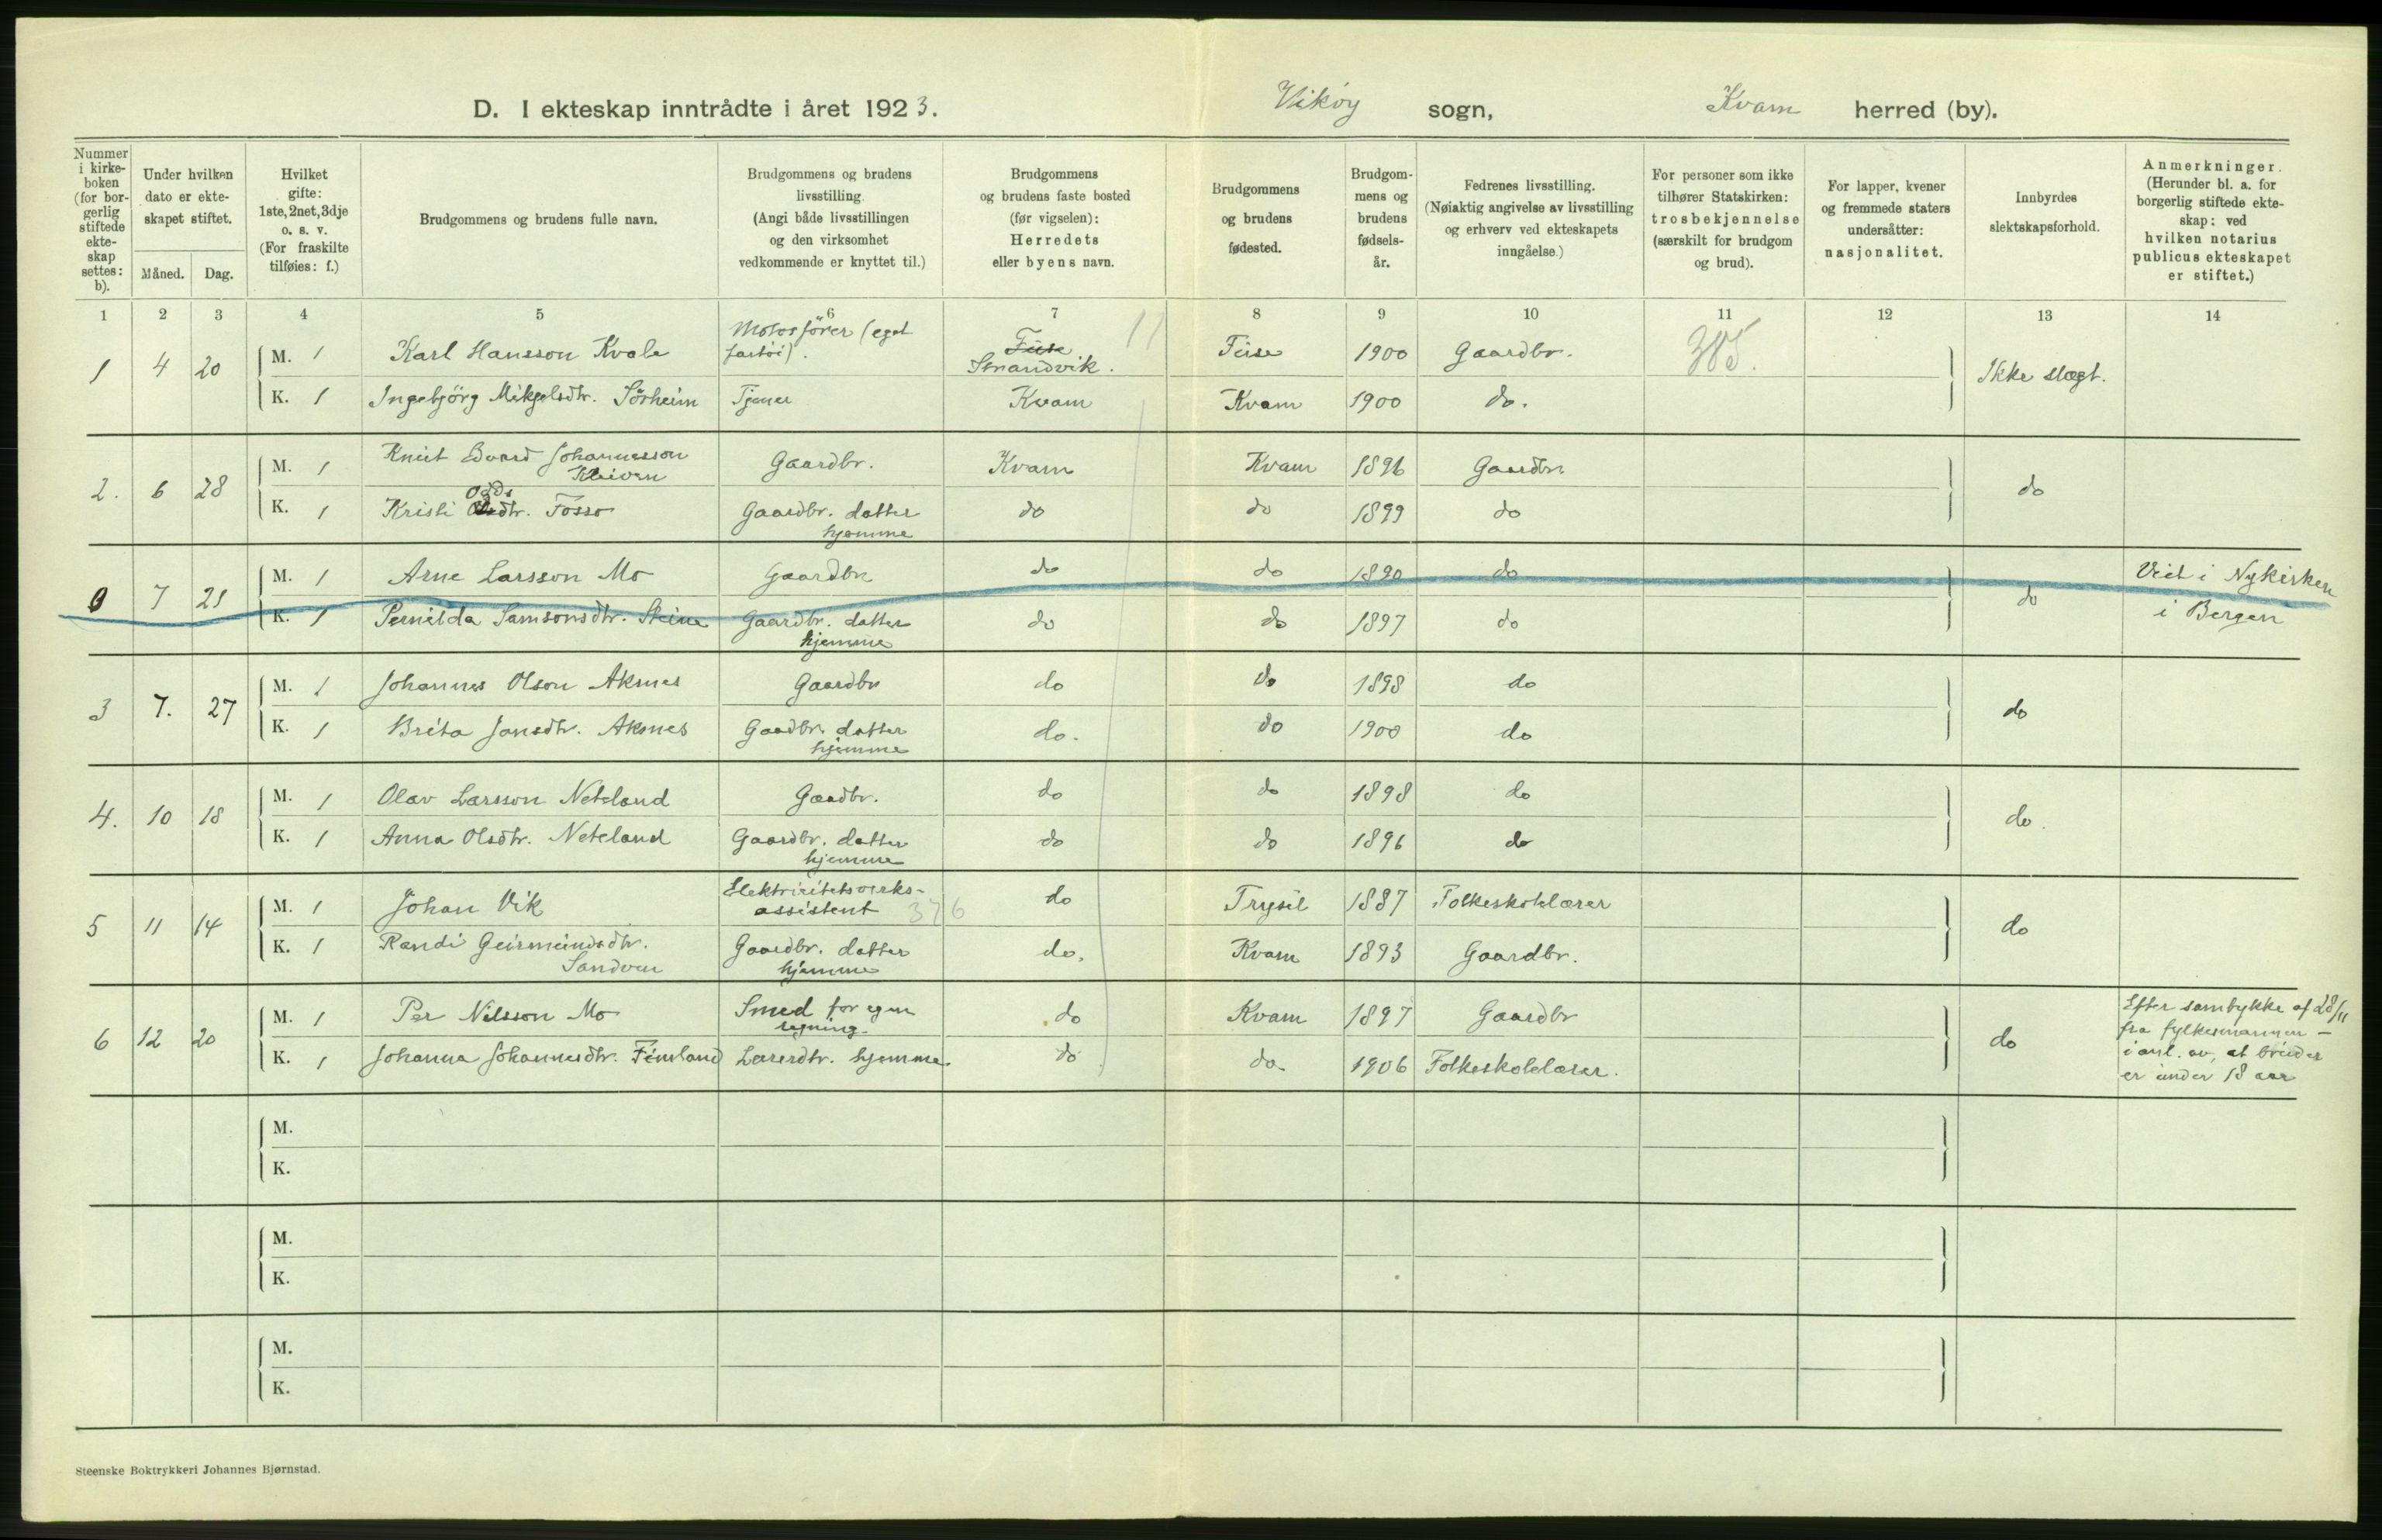 D. I ekteskap inntrådte i året 1923. Vikøy sogn, Kvam herred (by).
Nummer i kirkeboken (for borgerlig stiftede ekteskap settes: b).
Under hvilken dato er ekteskapet stiftet.
Måned. Dag.
Hvilket gifte: 1ste, 2net, 3dje o. s. v. (For fraskilte tilføies: f.)
Brudgommens og brudens fulle navn.
Brudgommens og brudens livsstilling. (Angi både livsstillingen og den virksomhet vedkommende er knyttet til.)
Brudgommens og brudens faste bosted (før vigselen): Herredets eller byens navn.
Brudgommens og brudens fødested.
Brudgommens og brudens fødselsår.
Fedrenes livsstilling. (Nøiaktig angivelse av livsstilling og erhverv ved ekteskapets inngåelse.)
For personer som ikke tilhører Statskirken: trosbekjennelse (særskilt for brudgom og brud).
For lapper, kvener og fremmede staters undersåtter: nasjonalitet.
Innbyrdes slektskapsforhold.
Anmerkninger. (Herunder bl. a. for borgerlig stiftede ekteskap: ved hvilken notarius publicus ekteskapet er stiftet.)
1 2 3 4 5 6 7 8 9 10 11 12 13 14
1 4 20 M. 1 Karl Hansson Kvale Motorfører (eget fartøi). Fuse Strandvik. 11 Fuse 1900 Gaardbr. 385. Ikke slægt.
K. 1 Ingebjörg Mikjelsdtr. Sörheim Tjener Kvam Kvam 1900 do.
2. 6 28 M. 1 Knut Edvard Johannesson Kleiven Gaardbr. Kvam Kvam 1896 Gaardbr do
K. 1 Kristi Oddsdtr. Fosse Gaardbr. datter hjemme do do 1899 do
0 7 21 M. 1 Arne Larsson Mo Gaardbr do do 1890 do do Viet i Nykirken
K. 1 Pernilda Samsonsdtr. Steine Gaardbr. datter hjemme do do 1897 do i Bergen
3 7. 27 M. 1 Johannes Olson Aksnes Gaardbr do do 1898 do do
K. 1 Brita Jonsdtr. Aksnes Gaardbr. datter hjemme do. do 1900 do
4. 10 18 M. 1 Olav Larsson Neteland Gaardbr. do do 1898 do do.
K. 1 Anna Olsdtr. Neteland Gaardbr. datter hjemme do do 1896 do
5 11 14 M. 1 Johan Vik Elektricitetsverks-assistent 376 do Trysil 1887 Folkeskolelærer do
K. 1 Randi Geirmundsdtr. Sandven Gaardbr. datter hjemme do. Kvam 1893 Gaardbr.
6 12 20 M. 1 Per Nilsson Mo Smed for egen regning. do Kvam 1897 Gaardbr do
K. 1 Johanna Johannesdtr. Femsland Lærerdtr. hjemme. do do. 1906 Folkeskolelærer.
Efter samtykke af 28/11
fra fylkesmannen –
i anl. av, at bruden
er under 18 aar
M.
K.
M.
K.
M.
K.
Steenske Boktrykkeri Johannes Bjørnstad.